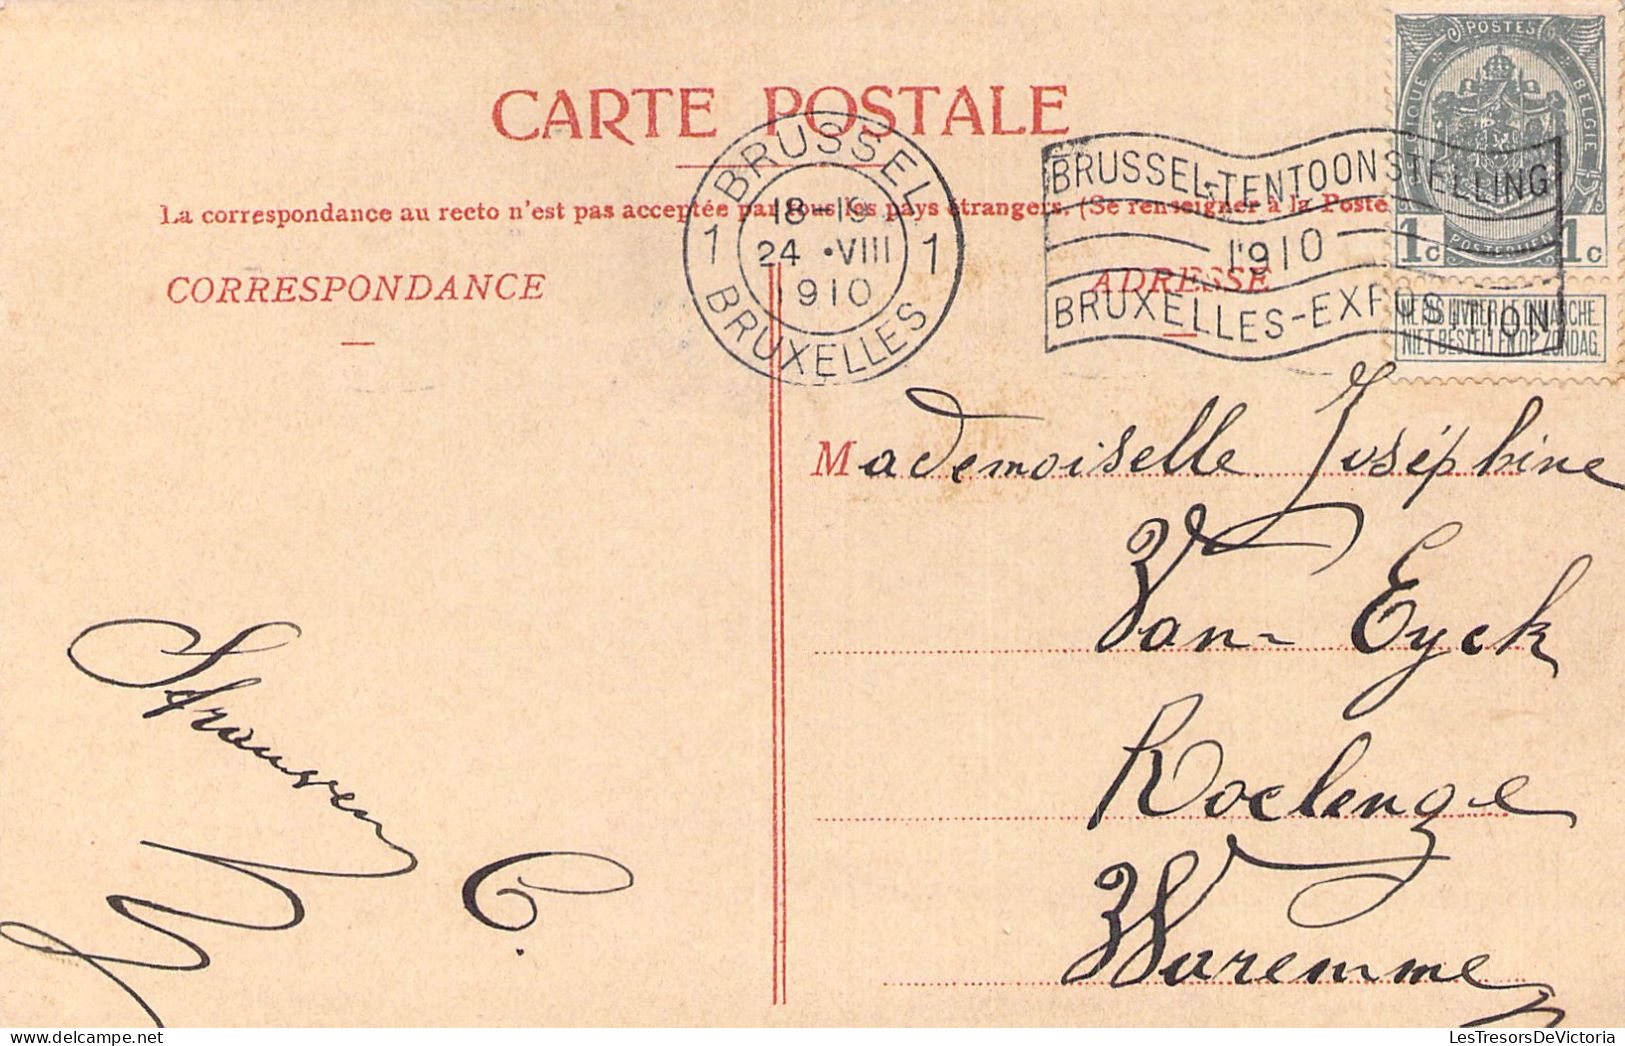 CARTE POSTALE
La correspondance au recto n'est pas acceptée par tous les pays étrangers. (Se renseigner à la Poste
CORRESPONDANCE
ADRESSE
BRUSSEL
18-19
1 24 •VIII 1
1910
BRUXELLES
BRUSSEL-TENTOONSTELLING
1910
BRUXELLES-EXPOSITION
POSTES
BELGIQUE BELGIE
POSTERIJEN
1c 1c
NE PAS LIVRER LE DIMANCHE
NIET BESTELLEN OP ZONDAG.
Mademoiselle Joséphine
Van-Eyck
Roclenge
Waremme
C.
LesTresorsDeVictoria